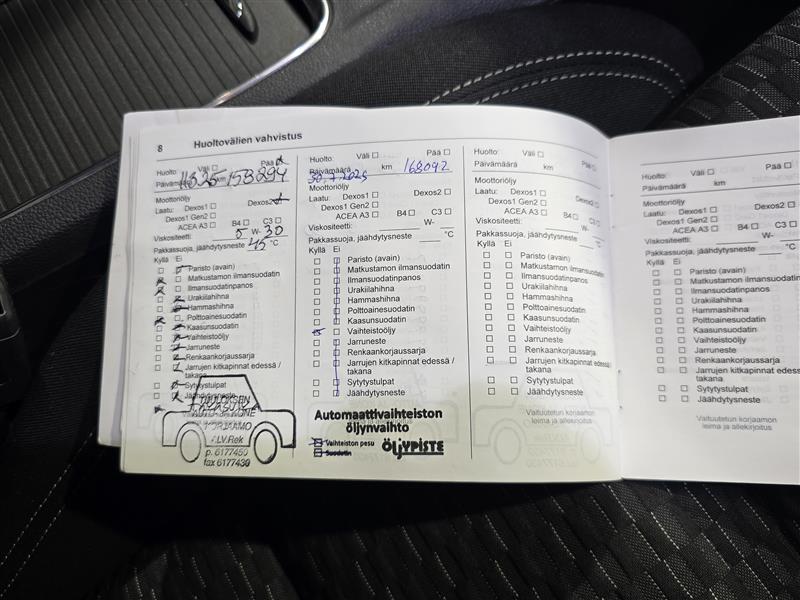 8 Huoltovälien vahvistus
Huolto: Väli ☐ Pää ☐
Päivämäärä km
158294
Moottoriöljy
Laatu: Dexos1 ☐ Dexos2
Dexos1 Gen2 ☐
ACEA A3 ☐ B4 ☐ C3 ☐
Viskositeetti: 5 W- 30
Pakkassuoja, jäähdytysneste 45 °C
Kyllä Ei
Paristo (avain)
Matkustamon ilmansuodatin
Ilmansuodatinpanos
Urakiilahihna
Hammashihna
Polttoainesuodatin
Kaasunsuodatin
Vaihteistoöljy
Jarruneste
Renkaankorjaussarja
Jarrujen kitkapinnat edessä /
takana
Sytytystulpat
Jäähdytysneste
KORJAAMO
p. 6177450
fax 6177430
Huolto: Väli ☐ Pää ☐
Päivämäärä km
30.7.2025 168092
Moottoriöljy
Laatu: Dexos1 ☐ Dexos2 ☐
Dexos1 Gen2 ☐
ACEA A3 ☐ B4 ☐ C3 ☐
Viskositeetti: W-
Pakkassuoja, jäähdytysneste °C
Kyllä Ei
Paristo (avain)
Matkustamon ilmansuodatin
Ilmansuodatinpanos
Urakiilahihna
Hammashihna
Polttoainesuodatin
Kaasunsuodatin
Vaihteistoöljy
Jarruneste
Renkaankorjaussarja
Jarrujen kitkapinnat edessä /
takana
Sytytystulpat
Jäähdytysneste
Automaattivaihteiston
öljynvaihto
Vaihteiston pesu
Suodatin
ÖLJYPISTE
Huolto: Väli ☐ Pää ☐
Päivämäärä km
Moottoriöljy
Laatu: Dexos1 ☐ Dexos2 ☐
Dexos1 Gen2 ☐
ACEA A3 ☐ B4 ☐ C3 ☐
Viskositeetti: W-
Pakkassuoja, jäähdytysneste °C
Kyllä Ei
Paristo (avain)
Matkustamon ilmansuodatin
Ilmansuodatinpanos
Urakiilahihna
Hammashihna
Polttoainesuodatin
Kaasunsuodatin
Vaihteistoöljy
Jarruneste
Renkaankorjaussarja
Jarrujen kitkapinnat edessä /
takana
Sytytystulpat
Jäähdytysneste
Valtuutetun korjaamon
leima ja allekirjoitus
Huolto: Väli ☐ Pää ☐
Päivämäärä km
Moottoriöljy
Laatu: Dexos1 ☐ Dexos2 ☐
Dexos1 Gen2 ☐
ACEA A3 ☐ B4 ☐ C3 ☐
Viskositeetti: W-
Pakkassuoja, jäähdytysneste °C
Kyllä Ei
Paristo (avain)
Matkustamon ilmansuodatin
Ilmansuodatinpanos
Urakiilahihna
Hammashihna
Polttoainesuodatin
Kaasunsuodatin
Vaihteistoöljy
Jarruneste
Renkaankorjaussarja
Jarrujen kitkapinnat edessä
takana
Sytytystulpat
Jäähdytysneste
Valtuutetun korjaamon
leima ja allekirjoitus